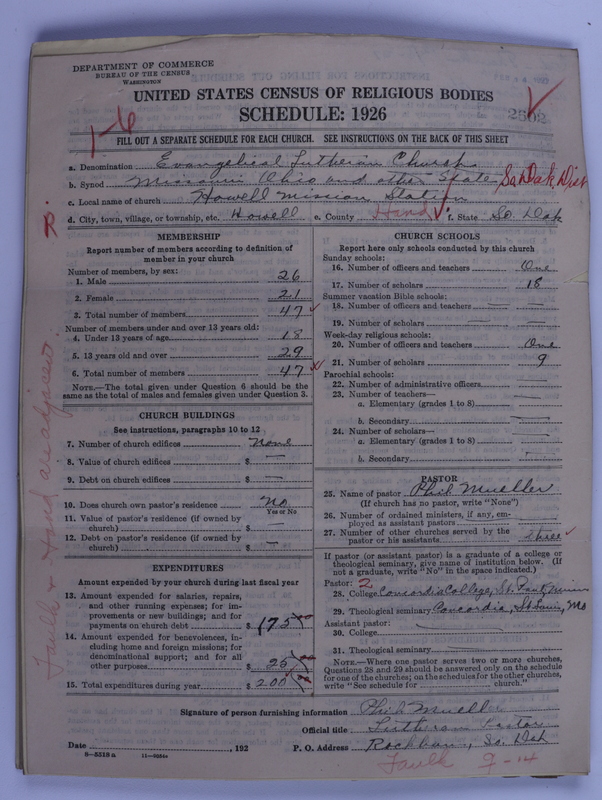 DEPARTMENT OF COMMERCE
BUREAU OF THE CENSUS
WASHINGTON
UNITED STATES CENSUS OF RELIGIOUS BODIES
SCHEDULE: 1926
2502
1-6
FILL OUT A SEPARATE SCHEDULE FOR EACH CHURCH. SEE INSTRUCTIONS ON THE BACK OF THIS SHEET
a. Denomination Evangelical Lutheran Church
b. Synod Missouri Ohio and other State So. Dak. Dist
c. Local name of church Howell Mission Station
d. City, town, village, or township, etc. Howell e. County Hand f. State So. Dak
R
MEMBERSHIP
Report number of members according to definition of
member in your church
Number of members, by sex:
1. Male 26
2. Female 21
3. Total number of members 47
Number of members under and over 13 years old:
4. Under 13 years of age 18
5. 13 years old and over 29
6. Total number of members 47
NOTE.—The total given under Question 6 should be the
same as the total of males and females given under Question 3.
CHURCH BUILDINGS
See instructions, paragraphs 10 to 12
7. Number of church edifices None
8. Value of church edifices $ —
9. Debt on church edifices $ —
10. Does church own pastor's residence? No
Yes or No
11. Value of pastor's residence (if owned by
church) $
12. Debt on pastor's residence (if owned by
church) $ —
EXPENDITURES
Amount expended by your church during last fiscal year
13. Amount expended for salaries, repairs,
and other running expenses; for im-
provements or new buildings; and for
payments on church debt $ 175.00
14. Amount expended for benevolences, in-
cluding home and foreign missions; for
denominational support; and for all
other purposes $ 25
15. Total expenditures during year $ 200.00
Faulk & Hand are adjacent
CHURCH SCHOOLS
Report here only schools conducted by this church
Sunday schools:
16. Number of officers and teachers One
17. Number of scholars 18
Summer vacation Bible schools:
18. Number of officers and teachers —
19. Number of scholars —
Week-day religious schools:
20. Number of officers and teachers One
21. Number of scholars 9
Parochial schools:
22. Number of administrative officers —
23. Number of teachers—
a. Elementary (grades 1 to 8) —
b. Secondary —
24. Number of scholars—
a. Elementary (grades 1 to 8) —
b. Secondary —
PASTOR
25. Name of pastor Phil. Mueller
(If church has no pastor, write "None")
26. Number of ordained ministers, if any, em-
ployed as assistant pastors
27. Number of other churches served by the
pastor or his assistants three
If pastor (or assistant pastor) is a graduate of a college or
theological seminary, give name of institution below. (If
not a graduate, write "No" in the space indicated.)
Pastor: 2
28. College Concordia College, St. Paul, Minn
29. Theological seminary Concordia, St. Louis, Mo
Assistant pastor:
30. College
31. Theological seminary
NOTE.—Where one pastor serves two or more churches,
Questions 28 and 29 should be answered only on the schedule
for one of the churches; on the schedules for the other churches,
write "See schedule for church."
Signature of person furnishing information Phil. Mueller
Official title Lutheran Pastor
Date , 192 P. O. Address Rockham, So. Dak
Faulk 9-14